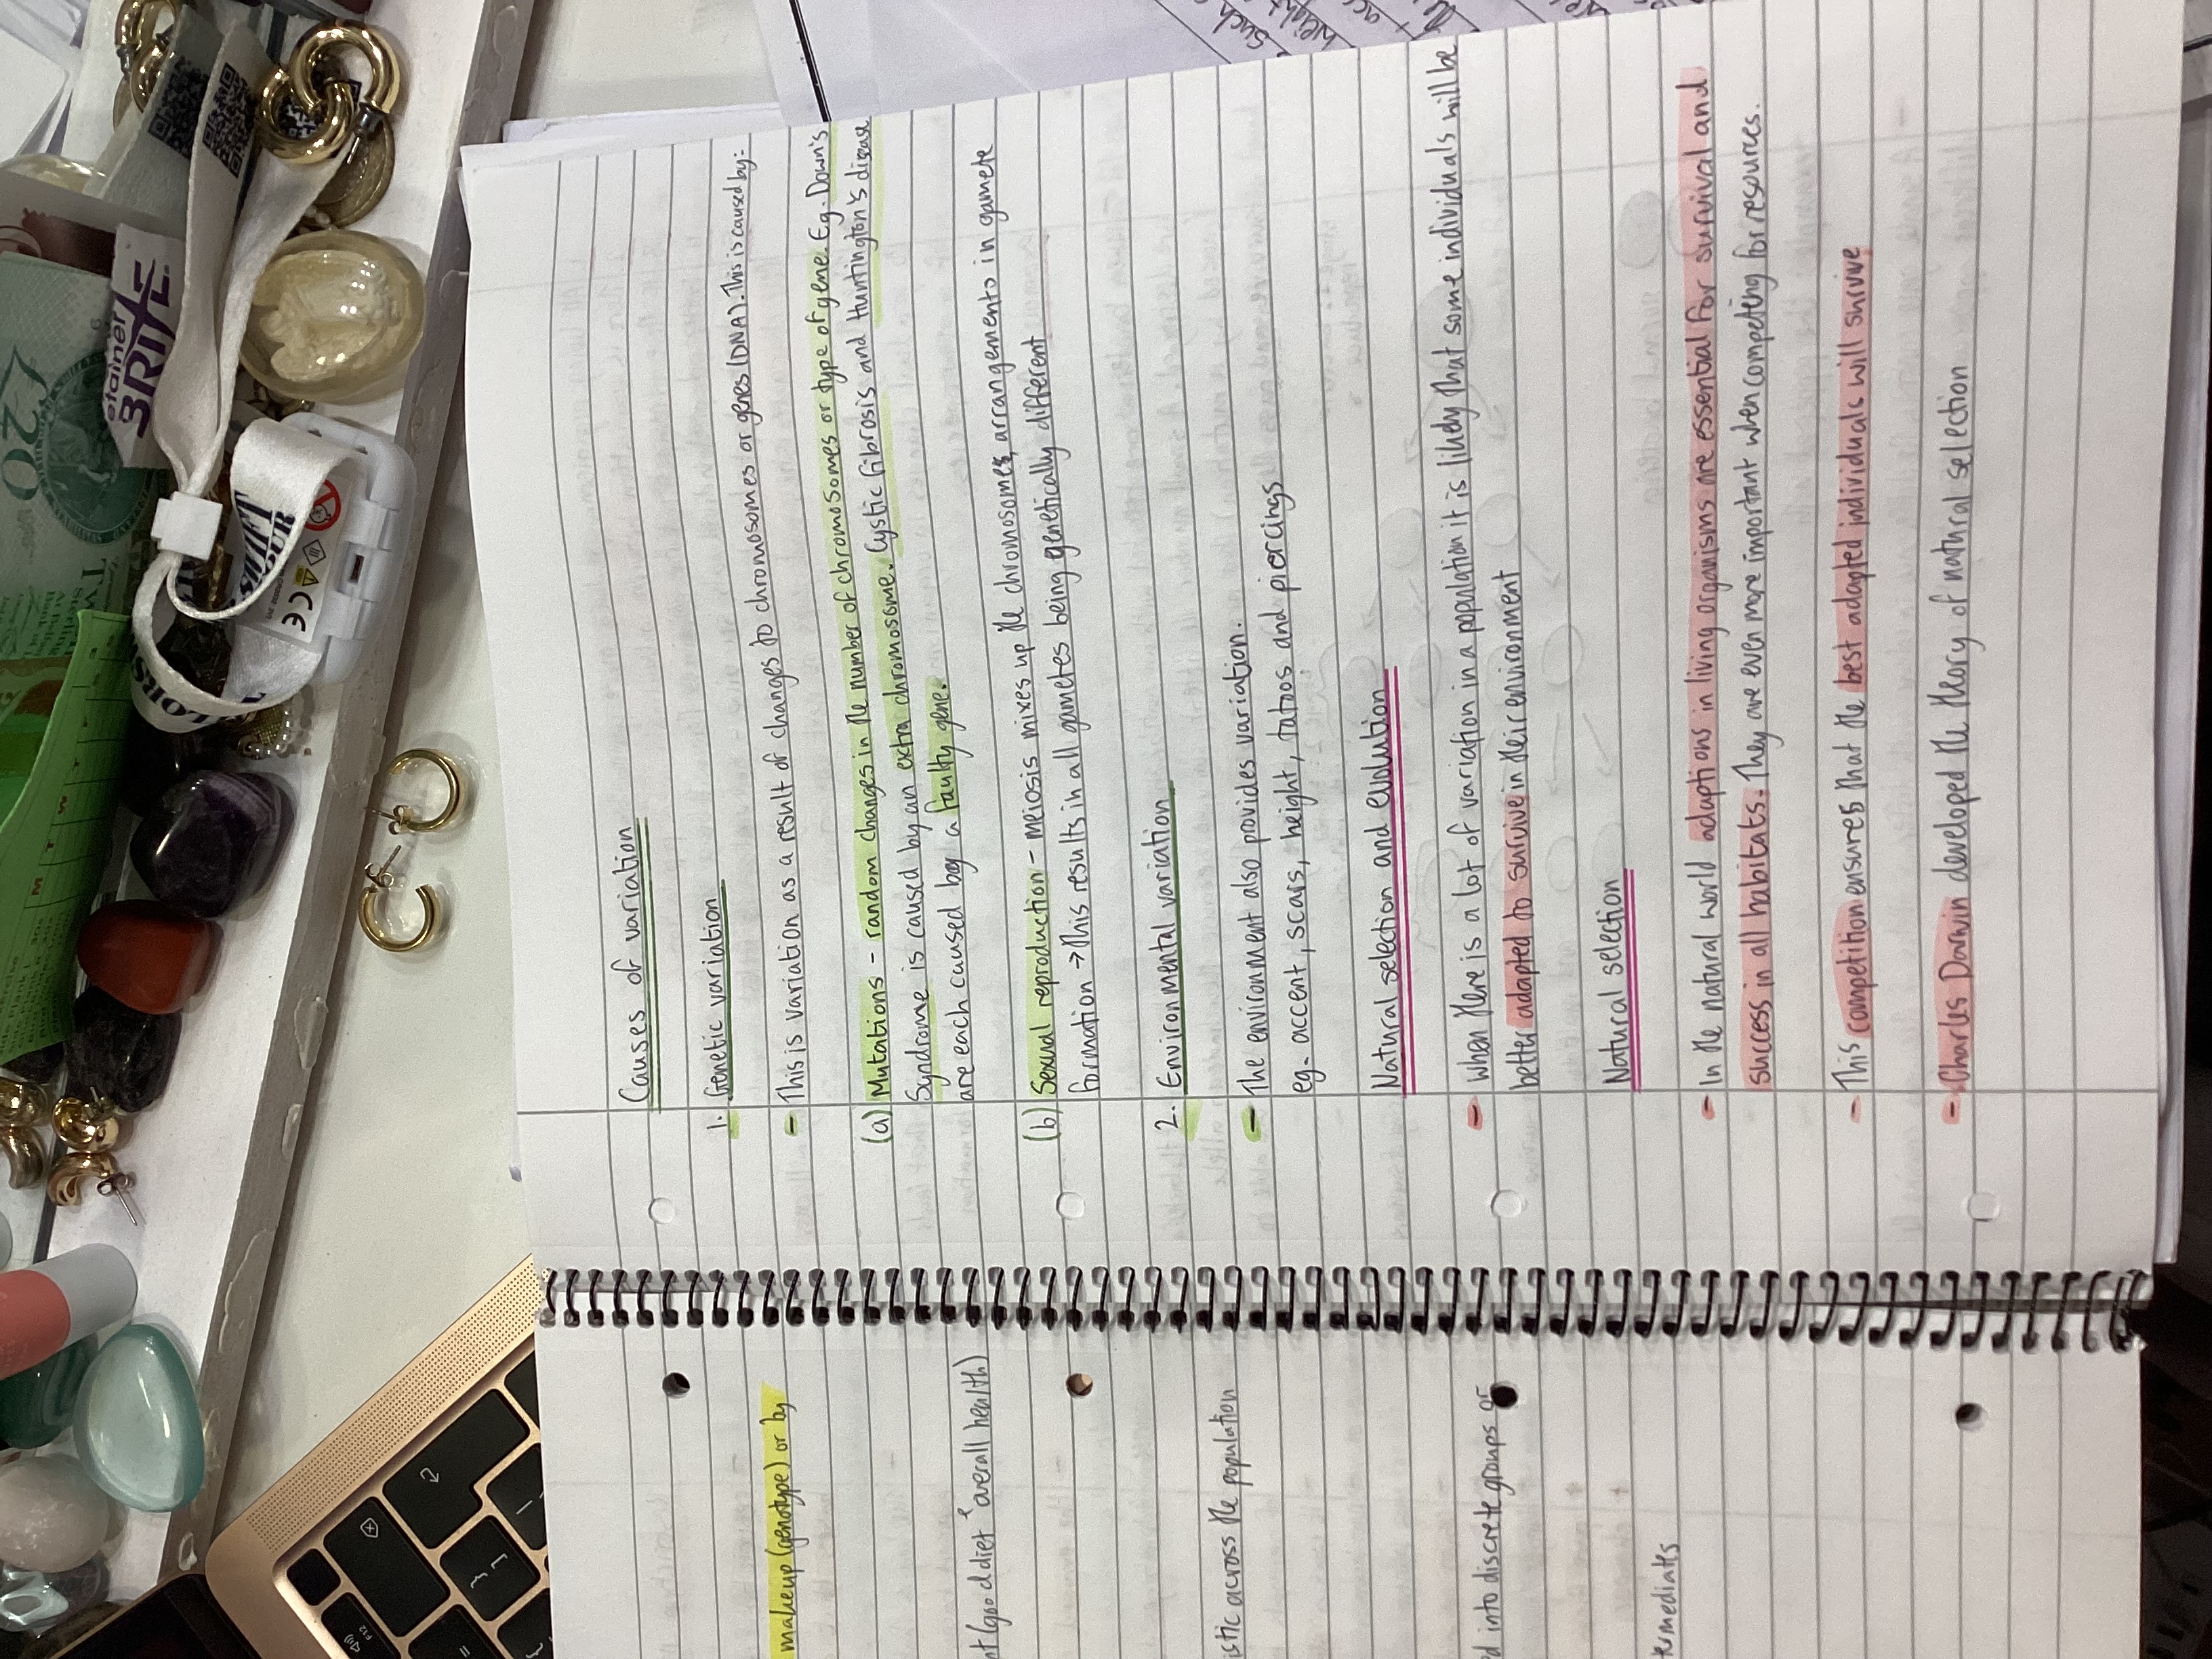 Causes of variation
1. Genetic variation
- This is variation as a result of changes to chromosomes or genes (DNA). This is caused by:-
(a) Mutations - random changes in the number of chromosomes or type of gene. Eg. Down's
Syndrome is caused by an extra chromosome. Cystic fibrosis and Huntington's disease
are each caused by a faulty gene.
(b) Sexual reproduction - meiosis mixes up the chromosomes arrangements in gamete
formation → this results in all gametes being genetically different
2. Environmental variation
- The environment also provides variation.
eg. accent, scars, height, tatoos and piercings
Natural selection and evolution
- When there is a lot of variation in a population it is likely that some individuals will be
better adapted to survive in their environment
Natural selection
- In the natural world adaptions in living organisms are essential for survival and
success in all habitats. They are even more important when competing for resources.
- This competition ensures that the best adapted individuals will survive
- Charles Darwin developed the theory of natural selection
makeup (genotype) or by
nt (good diet overall health)
istic across the population
ed into discrete groups or
termediates
etainer
BRITE
20
such
height
COLORS
F12